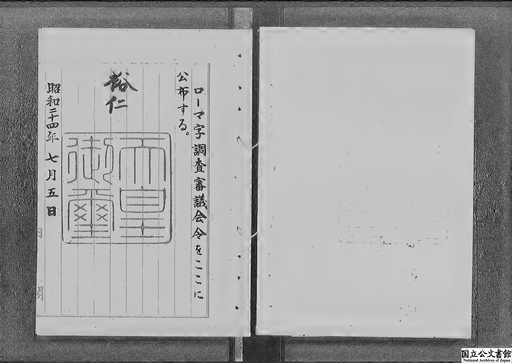 ローマ字調査審議会令をここに
公布する。
裕仁
天皇
御璽
昭和二十四年七月五日
国立公文書館
National Archives of Japan